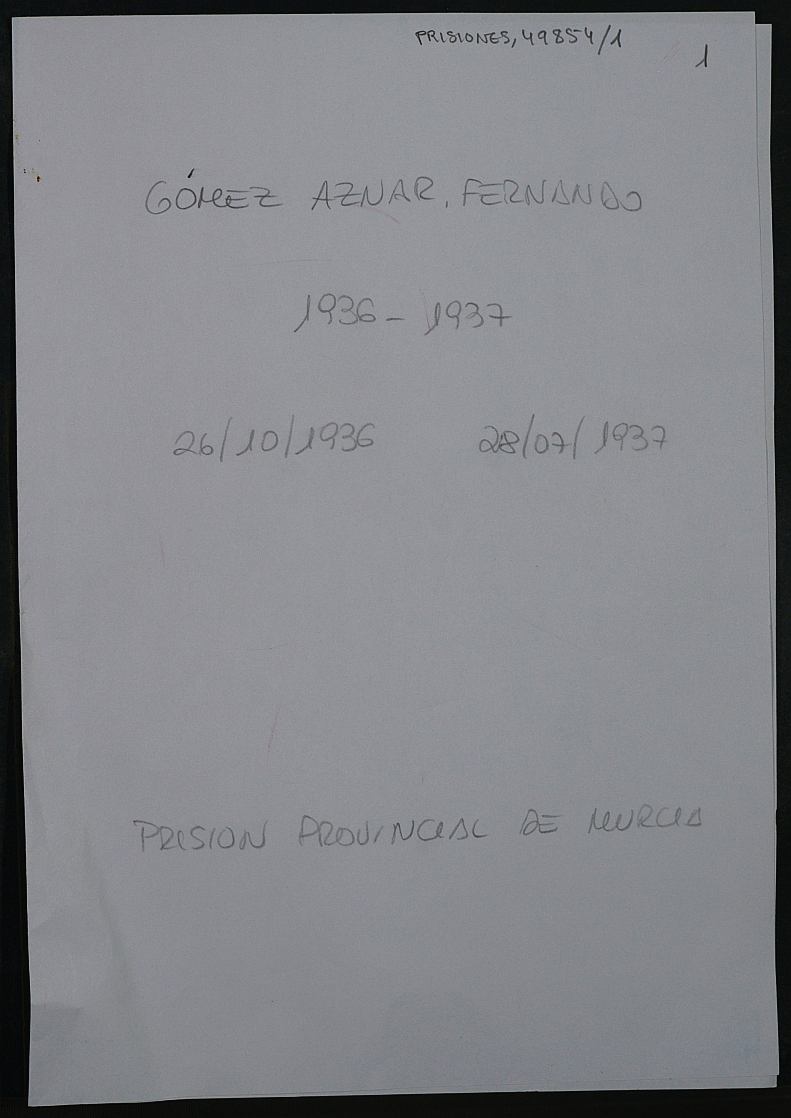 PRISIONES, 49854/1
1
GÓMEZ AZNAR, FERNANDO
1936 - 1937
26/10/1936 28/07/1937
PRISION PROVINCIAL DE MURCIA